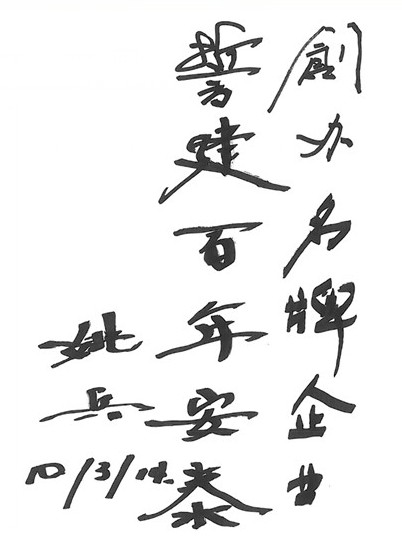 創办名牌企业
誓建百年安泰
姚兵
10/3/14.